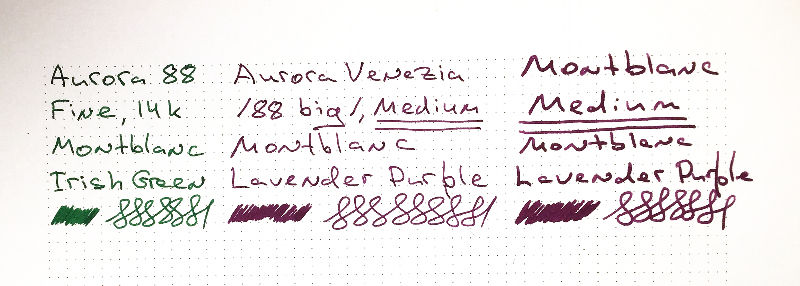 Aurora 88
Fine, 14k
Montblanc
Irish Green
Aurora Venezia
/88 big/, Medium
Montblanc
Lavender Purple
Montblanc
Medium
Montblanc
Lavender Purple